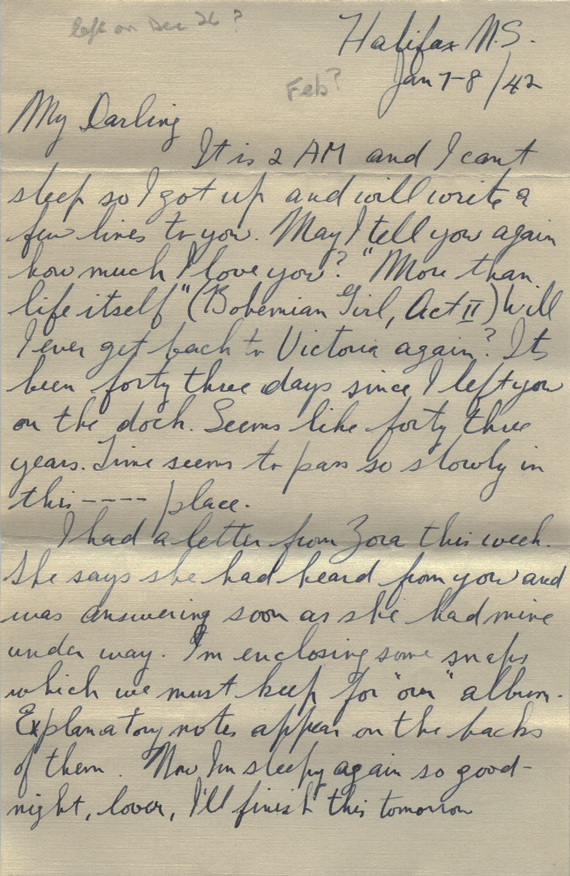 left on Dec 26?
Halifax N.S.
Jan 7-8/42
Feb?
My Darling
It is 2 AM and I cant
sleep so I got up and will write a
few lines to you. May I tell you again
how much I love you? "More than
life itself" (Bohemian Girl, Act II) Will
I ever get back to Victoria again? Its
been forty three days since I left you
on the dock. Seems like forty three
years. Time seems to pass so slowly in
this ---- place.
I had a letter from Zora this week.
She says she had heard from you and
was answering soon as she had mine
under way. I'm enclosing some snaps
which we must keep for "our" album.
Explanatory notes appear on the backs
of them. Now Im sleepy again so good-
night, lover, I'll finish this tomorrow